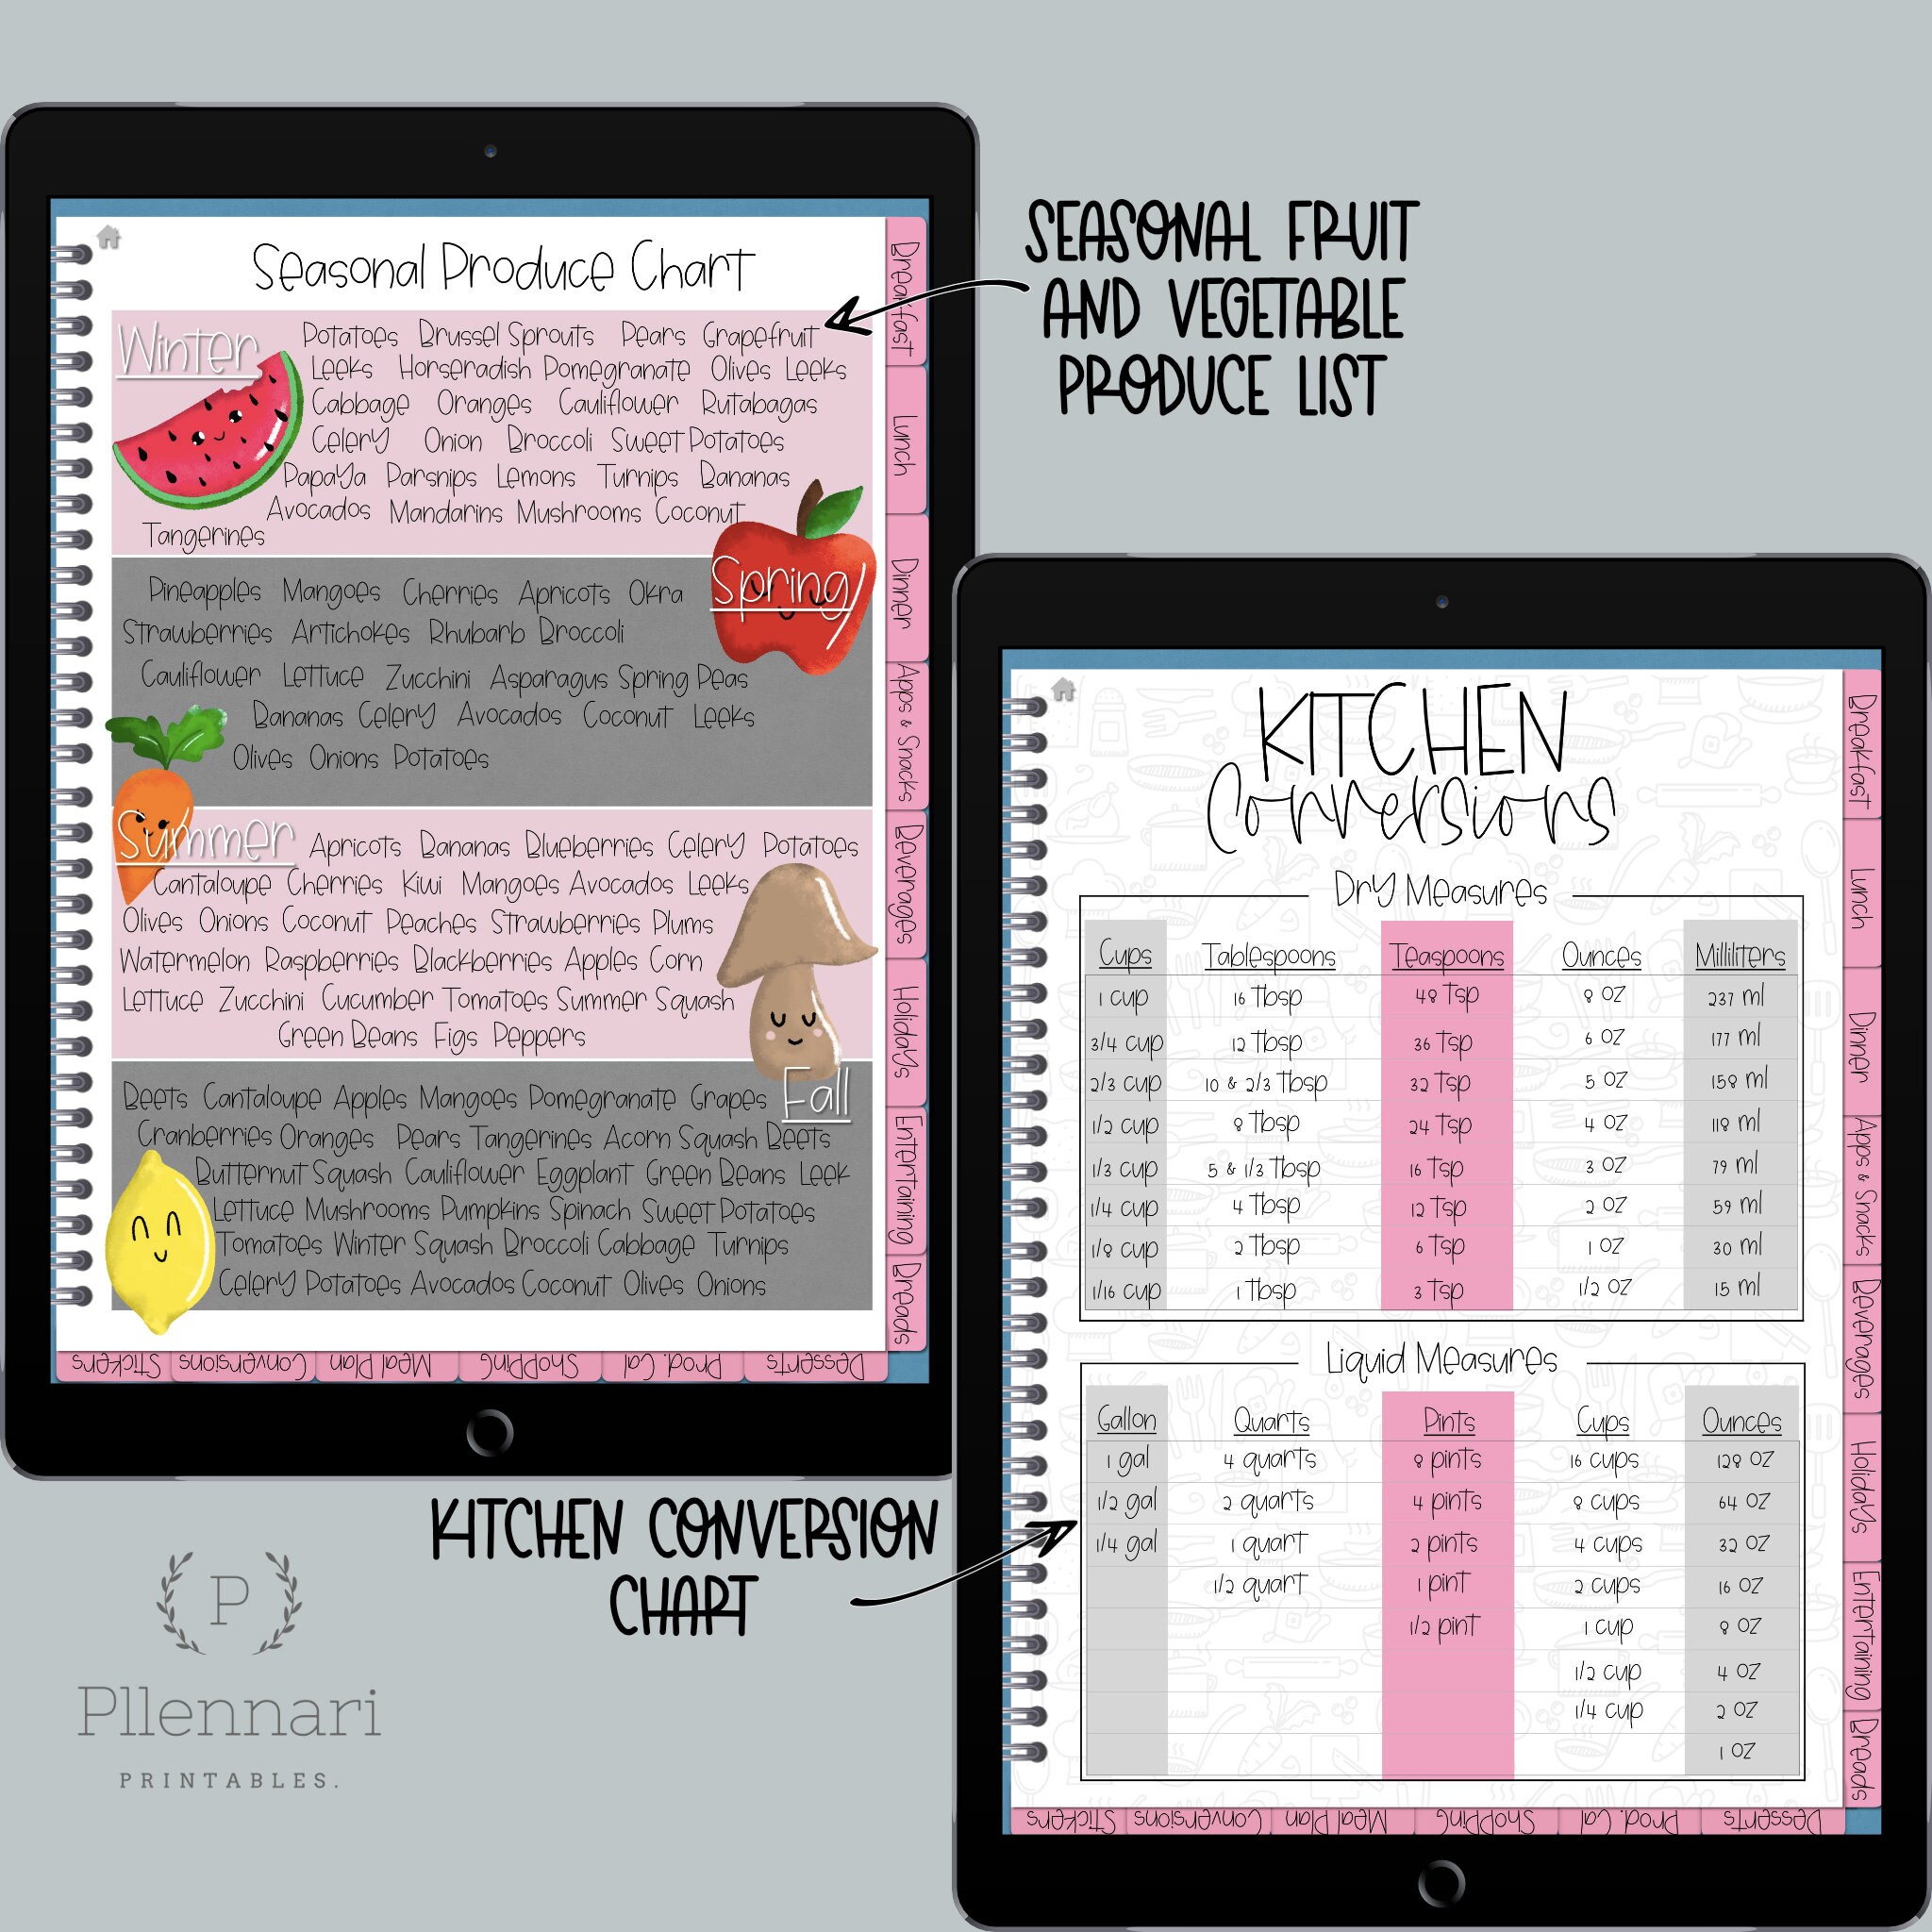 SEASONAL FRUIT
AND VEGETABLE
PRODUCE LIST
Seasonal Produce Chart
Winter
Potatoes Brussel Sprouts Pears Grapefruit
Leeks Horseradish Pomegranate Olives Leeks
Cabbage Oranges Cauliflower Rutabagas
Celery Onion Broccoli Sweet Potatoes
Papaya Parsnips Lemons Turnips Bananas
Avocados Mandarins Mushrooms Coconut
Tangerines
Spring
Pineapples Mangoes Cherries Apricots Okra
Strawberries Artichokes Rhubarb Broccoli
Cauliflower Lettuce Zucchini Asparagus Spring Peas
Bananas Celery Avocados Coconut Leeks
Olives Onions Potatoes
Summer
Apricots Bananas Blueberries Celery Potatoes
Cantaloupe Cherries Kiwi Mangoes Avocados Leeks
Olives Onions Coconut Peaches Strawberries Plums
Watermelon Raspberries Blackberries Apples Corn
Lettuce Zucchini Cucumber Tomatoes Summer Squash
Green Beans Figs Peppers
Fall
Beets Cantaloupe Apples Mangoes Pomegranate Grapes
Cranberries Oranges Pears Tangerines Acorn Squash Beets
Butternut Squash Cauliflower Eggplant Green Beans Leek
Lettuce Mushrooms Pumpkins Spinach Sweet Potatoes
Tomatoes Winter Squash Broccoli Cabbage Turnips
Celery Potatoes Avocados Coconut Olives Onions
Breakfast
Lunch
Dinner
Apps & Snacks
Beverages
Holidays
Entertaining
Breads
Stickers Conversions Meal Plan Shopping Prod. Cal Desserts
KITCHEN CONVERSION
CHART
P
Pllennari
PRINTABLES.
KITCHEN
Conversions
Dry Measures
Cups Tablespoons Teaspoons Ounces Milliliters
1 cup 16 Tbsp 48 Tsp 8 oz 237 ml
3/4 cup 12 Tbsp 36 Tsp 6 oz 177 ml
2/3 cup 10 & 2/3 Tbsp 32 Tsp 5 oz 158 ml
1/2 cup 8 Tbsp 24 Tsp 4 oz 118 ml
1/3 cup 5 & 1/3 Tbsp 16 Tsp 3 oz 79 ml
1/4 cup 4 Tbsp 12 Tsp 2 oz 59 ml
1/8 cup 2 Tbsp 6 Tsp 1 oz 30 ml
1/16 cup 1 Tbsp 3 Tsp 1/2 oz 15 ml
Liquid Measures
Gallon Quarts Pints Cups Ounces
1 gal 4 quarts 8 pints 16 cups 128 oz
1/2 gal 2 quarts 4 pints 8 cups 64 oz
1/4 gal 1 quart 2 pints 4 cups 32 oz
1/2 quart 1 pint 2 cups 16 oz
1/2 pint 1 cup 8 oz
1/2 cup 4 oz
1/4 cup 2 oz
1 oz
Breakfast
Lunch
Dinner
Apps & Snacks
Beverages
Holidays
Entertaining
Breads
Stickers Conversions Meal Plan Shopping Prod. Cal Desserts